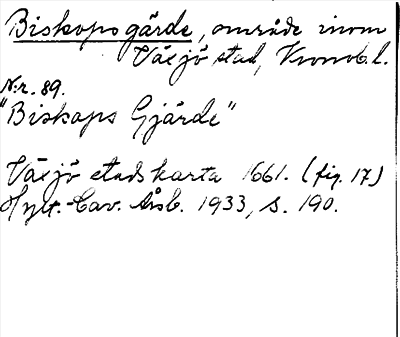 Biskopsgärde, område inom
Växjö stad, Kronob. l.
N:r. 89.
"Biskops Gjärde"
Växjö stadskarta 1661. (fig. 17)
Hylt.-Cav. Årsb. 1933, s. 190.